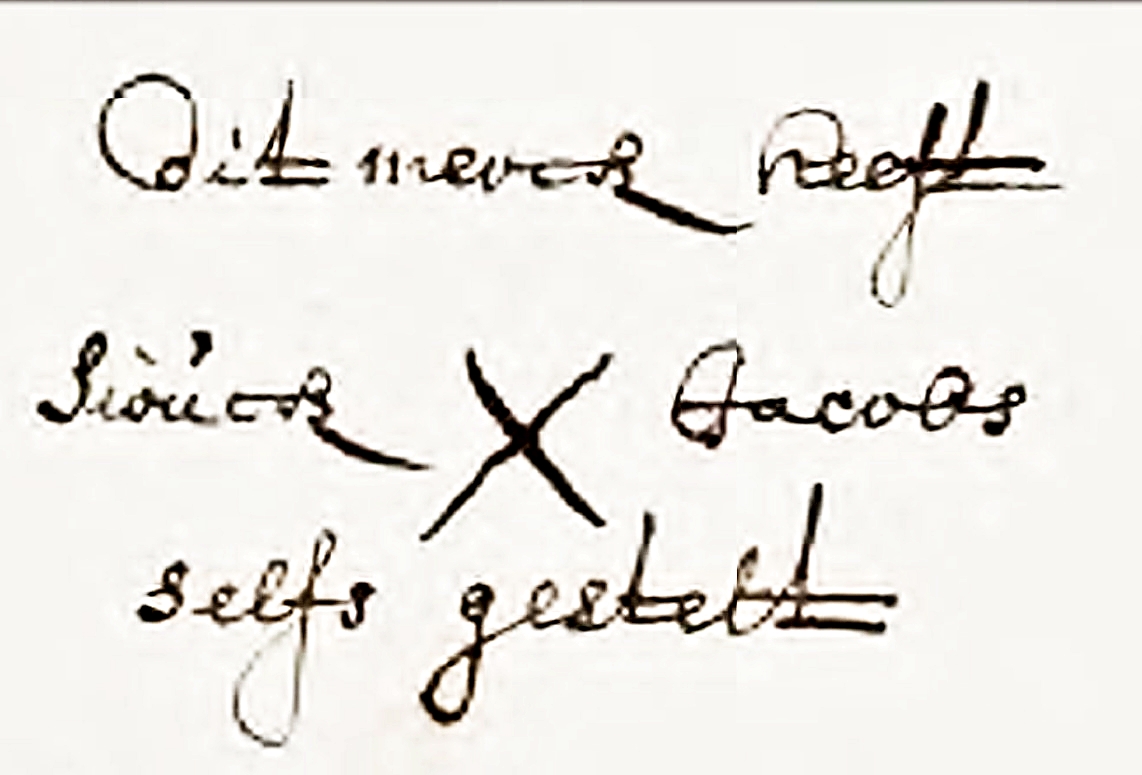 Dit merck heeft
Sioúck X Jacobs
selfs gestelt